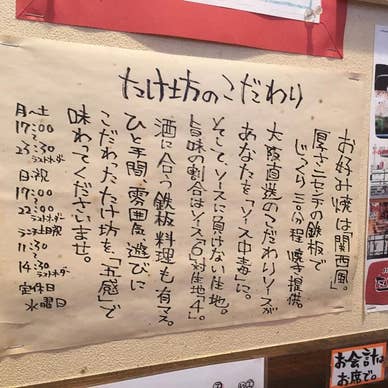 たけ坊のこだわり
お好み焼は「関西風」。
厚さニセンチの鉄板で
じっくり二〇分程焼き提供。
大阪直送のこだわりソースが
あなたを「ソース中毒」に。
そして、ソースに負けない生地。
旨味の割合はソース「6」対生地「4」。
酒に合う鉄板料理も有マス。
ひと手間、雰囲気、遊びに
こだわったたけ坊を「五感」で
味わってくださいませ。
月〜土
17:00
〜
23:30
ラストオーダー
日・祝
17:00
〜
22:00
ラストオーダー
ランチ土日祝
11:30
〜
14:30
ラストオーダー
定休日
水曜日
お会計は
お席で。